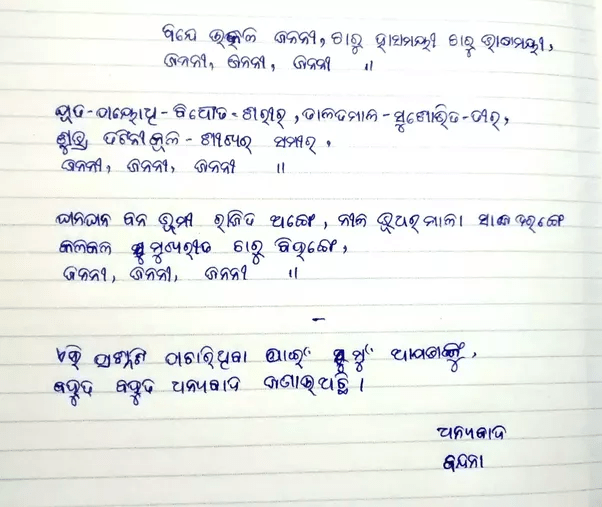 ବନ୍ଦେ ଉତ୍କଳ ଜନନୀ, ଚାରୁ ହାସମୟୀ ଚାରୁ ଭାଷମୟୀ,
ଜନନୀ, ଜନନୀ, ଜନନୀ ॥
ପୂତ-ପୟୋଧି-ବିଧୌତ-ଶରୀର, ତାଳତମାଳ-ସୁଶୋଭିତ-ତୀର,
ଶୁଭ୍ର ତଟିନୀକୂଳ-ଶୀକର ସମୀର,
ଜନନୀ, ଜନନୀ, ଜନନୀ ॥
ଘନଘନ ବନ ଭୂମୀ ରାଜିତ ଅଙ୍ଗେ, ନୀଳ ଭୂଧରମାଳା ସାଜେ ତରଙ୍ଗେ
କଳକଳ ମୁଖରିତ ଚାରୁ ବିହଙ୍ଗେ,
ଜନନୀ, ଜନନୀ, ଜନନୀ ॥
–
ଏହି ପ୍ରଶ୍ନଟି ପଚାରିଥିବା ପାଇଁ ମୁଁ ଆପଣଙ୍କୁ,
ବହୁତ ବହୁତ ଧନ୍ୟବାଦ ଜଣାଉଅଛି।
ଧନ୍ୟବାଦ
ବନ୍ଦନା